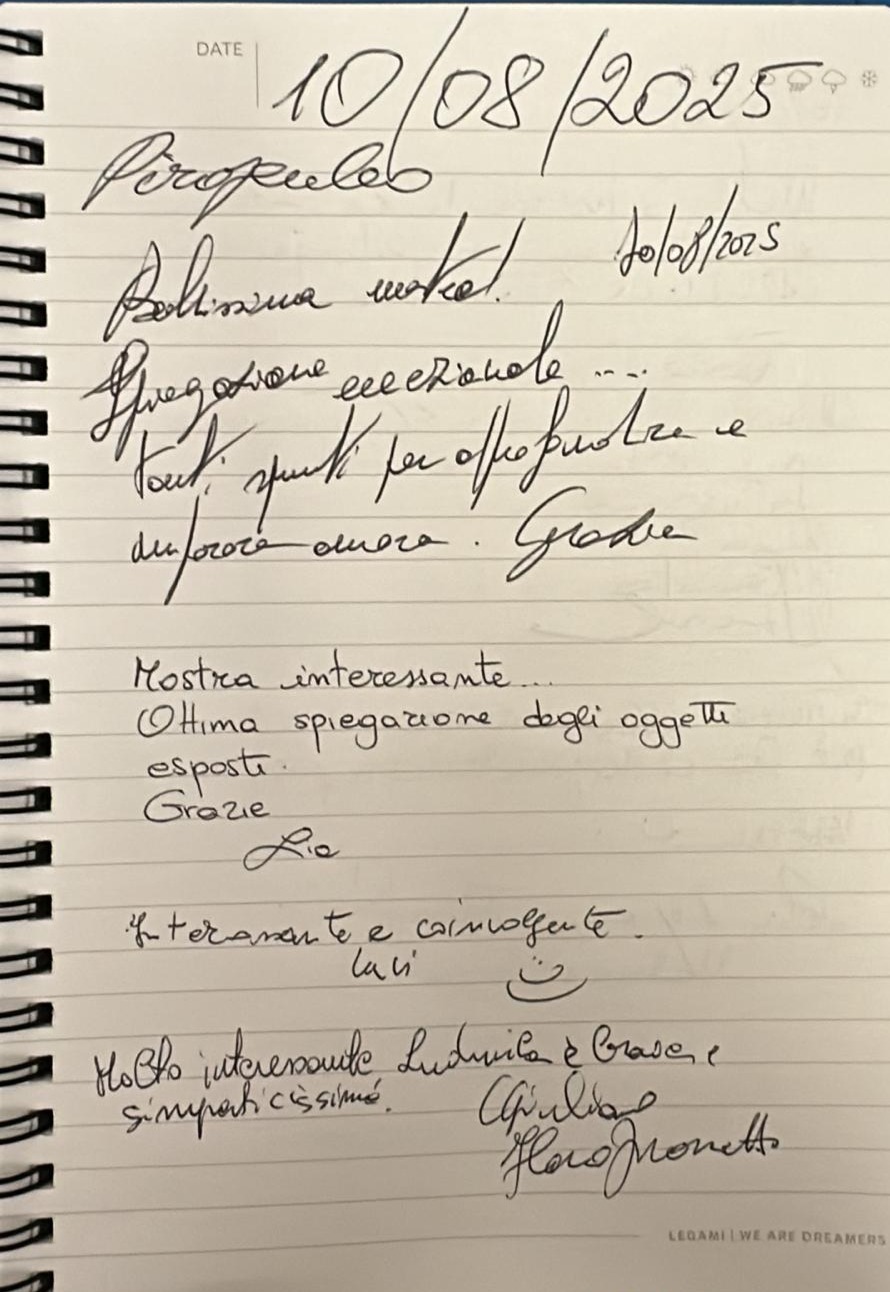 DATE
10/08/2025
10/08/2025
Bellissima mostra!
Spiegazione eccezionale ....
tanti spunti per approfondire e
imparare ancora. Grazie
Mostra interessante...
Ottima spiegazione degli oggetti
esposti.
Grazie
Lia
Interessante e coinvolgente.
Molto interessante Ludmila è brava e
simpaticissima.
Giuliana
LEGAMI | WE ARE DREAMERS